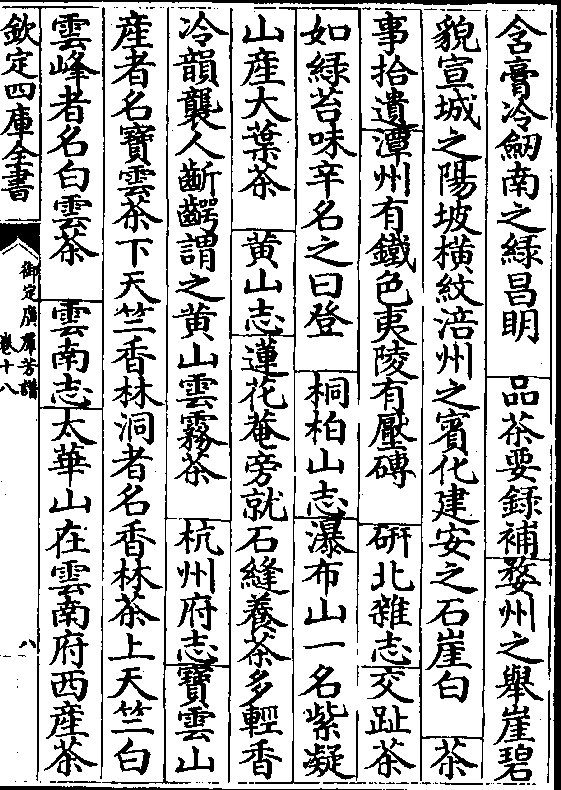 含膏冷劒南之緑昌明　品茶要録補婺州之舉崖碧
貌宣城之陽坡横紋涪州之賓化建安之石崖白　茶
事拾遺潭州有鐵色夷陵有壓磚　硏北雜志交趾茶
如緑苔味辛名之曰登　桐柏山志瀑布山一名紫凝
山産大葉茶　黄山志蓮花菴旁就石縫養茶多輕香
冷韻襲人齗齶謂之黄山雲霧茶　杭州府志寶雲山
産者名寶雲茶下天竺香林洞者名香林茶上天竺白
雲峰者名白雲茶　雲南志太華山在雲南府西産茶
欽定四庫全書
御定廣羣芳譜
卷十八
八